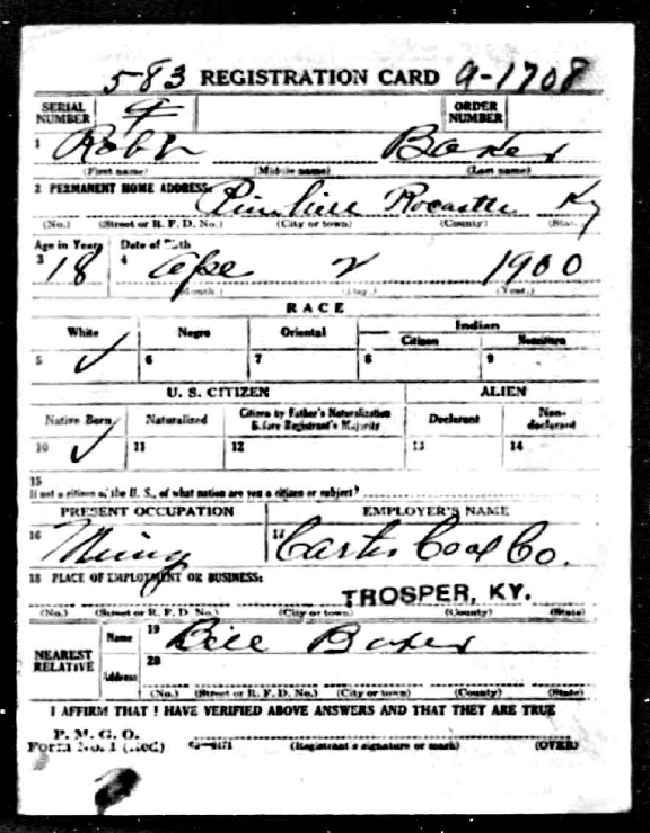 583 REGISTRATION CARD 9-1708
SERIAL NUMBER 4 ORDER NUMBER
1 Robt Baker
(First name) (Middle name) (Last name)
2 PERMANENT HOME ADDRESS: Rocastle Ky
(No.) (Street or R. F. D. No.) (City or town) (County) (State)
Age in Years Date of Birth
3 18 4 Apr 2 1900
(Month.) (Day.) (Year.)
RACE
White Negro Oriental Indian
Citizen Noncitizen
5 ✓ 6 7 8 9
U. S. CITIZEN ALIEN
Native Born Naturalized Citizen by Father's Naturalization Before Registrant's Majority Declarant Non-declarant
10 ✓ 11 12 13 14
15
If not a citizen of the U. S., of what nation are you a citizen or subject?
PRESENT OCCUPATION EMPLOYER'S NAME
16 Mining 17 Carter Coal Co.
18 PLACE OF EMPLOYMENT OR BUSINESS:
TROSPER, KY.
(No.) (Street or R. F. D. No.) (City or town) (County) (State)
NEAREST RELATIVE Name 19 Bill Baker
Address 20
(No.) (Street or R. F. D. No.) (City or town) (County) (State)
I AFFIRM THAT I HAVE VERIFIED ABOVE ANSWERS AND THAT THEY ARE TRUE
P. M. G. O.
Form No. 1 (Red) (Registrant's signature or mark) (OVER)